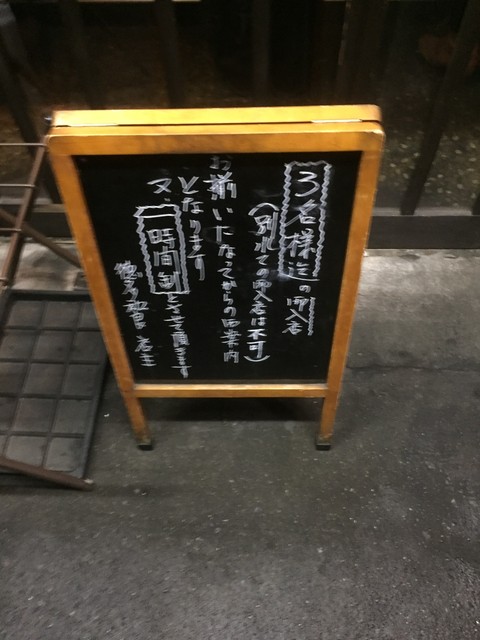 3名様迄の御入店
(別れての御入店は不可)
お揃いになってからの御案内
となります
又、一時間制とさせて頂きます
店主